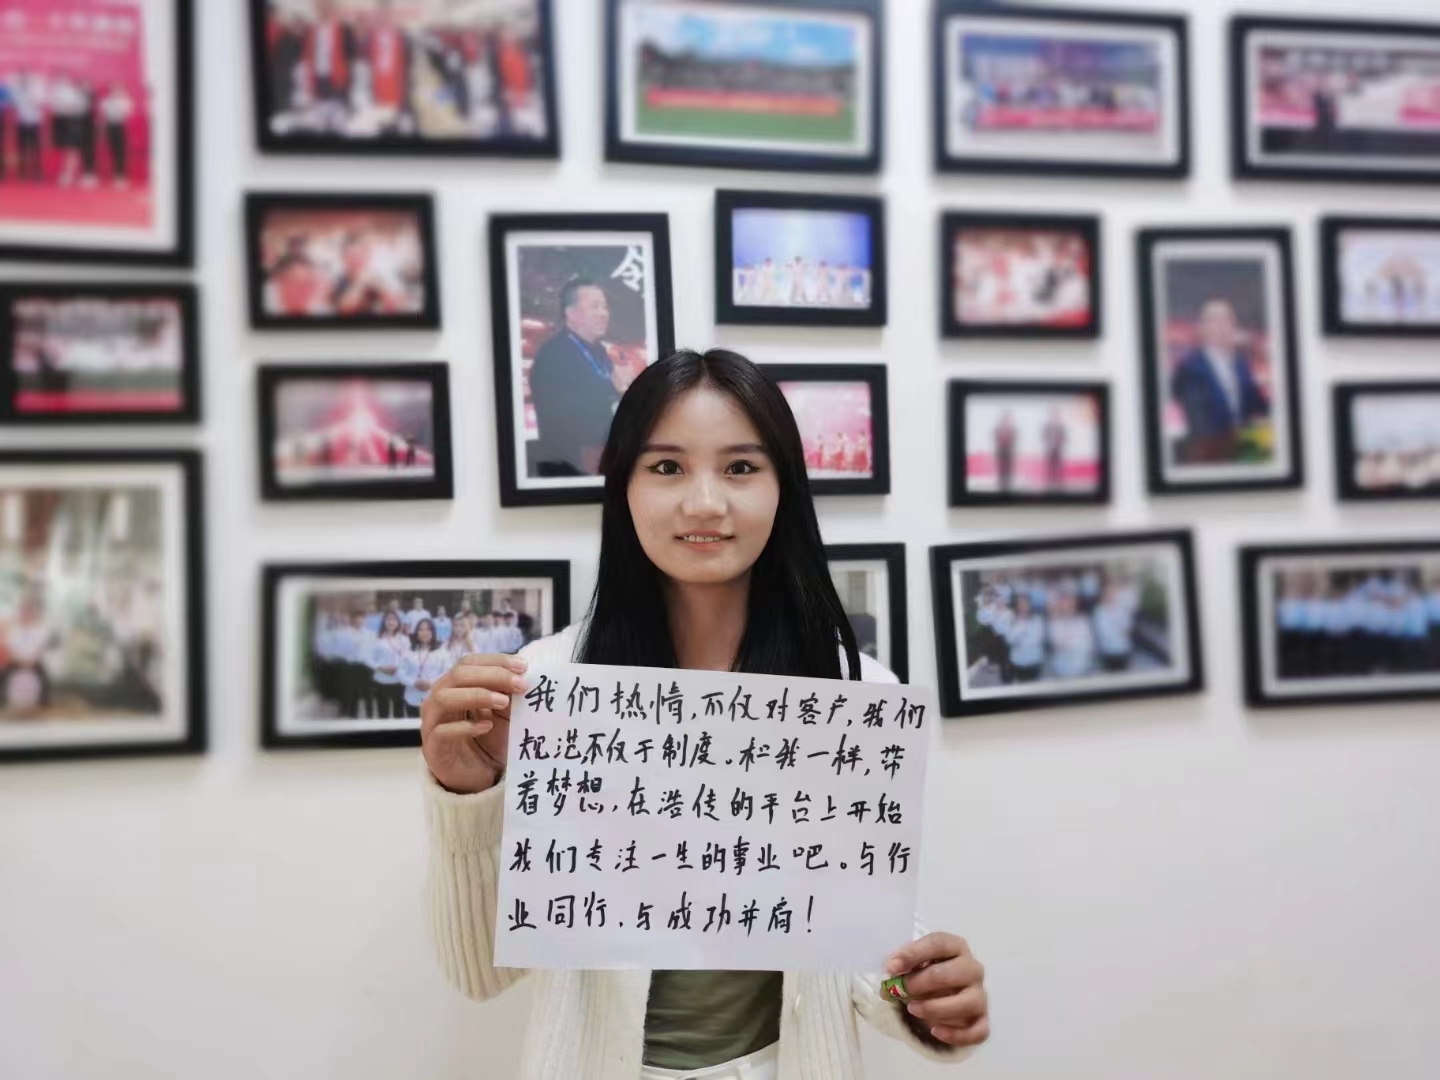 令
我们热情,不仅对客户,我们
规范,不仅于制度。和我一样,带
着梦想,在浩传的平台上开始
我们专注一生的事业吧。与行
业同行,与成功并肩!